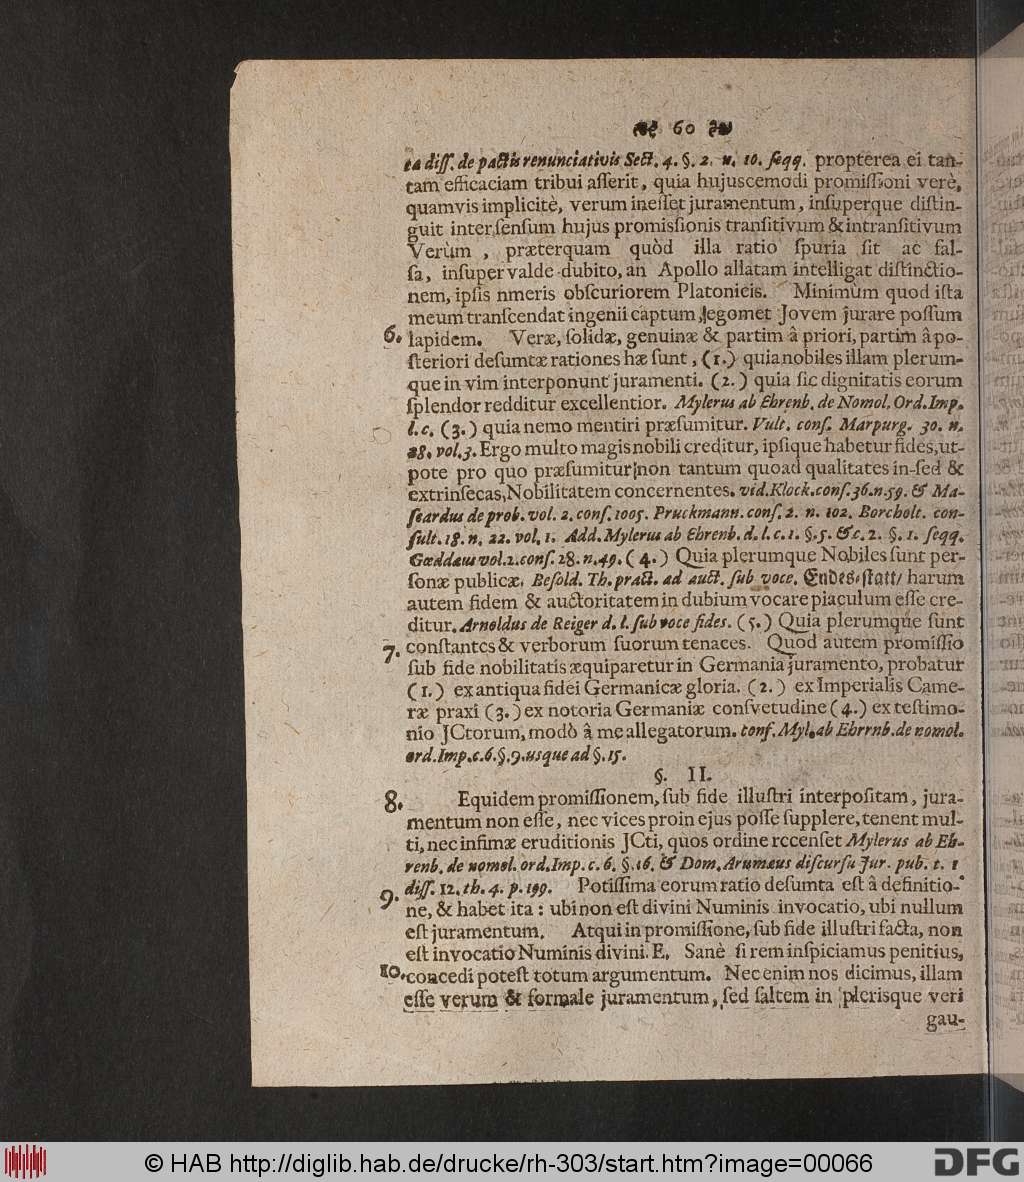 60
ta diſſ. de pactis renunciativis Sect. 4. §. 2. n. 10. ſeqq. propterea ei tan-
tam efficaciam tribui aſſerit, quia hujuscemodi promiſſioni verè,
quamvis implicitè, verum ineſſet juramentum, inſuperque diſtin-
guit inter ſenſum hujus promisſionis tranſitivum & intranſitivum
Verùm , præterquam quòd illa ratio ſpuria ſit ac fal-
ſa, inſuper valde dubito, an Apollo allatam intelligat diſtinctio-
nem, ipſis nmeris obſcuriorem Platonicis. Minimùm quod iſta
meum tranſcendat ingenii captum, egomet Jovem jurare poſſum
6. lapidem. Veræ, ſolidæ, genuinæ & partim â priori, partim â po-
ſteriori deſumtæ rationes hæ ſunt, (1.) quia nobiles illam plerum-
que in vim interponunt juramenti. (2.) quia ſic dignitatis eorum
ſplendor redditur excellentior. Mylerus ab Ehrenb. de Nomol. Ord. Imp.
l. c. (3.) quia nemo mentiri præſumitur. Vult. conſ. Marpurg. 30. n.
28. vol. 3. Ergo multo magis nobili creditur, ipſique habetur fides, ut-
pote pro quo præſumitur non tantum quoad qualitates in-ſed &
extrinſecas, Nobilitatem concernentes. vid. Klock. conſ. 36. n. 59. & Ma-
ſcardus de prob. vol. 2. conſ. 1005. Pruckmann. conſ. 2. n. 102. Borcholt. con-
ſult. 18. n. 22. vol. 1. Add. Mylerus ab Ehrenb. d. l. c. 1. §. 5. & c. 2. §. 1. ſeqq.
Gœddæus vol. 2. conſ. 28. n. 49. (4.) Quia plerumque Nobiles ſunt per-
ſonæ publicæ. Beſold. Th. pract. ad auct. ſub voce. Endes-ſtatt/ harum
autem fidem & auctoritatem in dubium vocare piaculum eſſe cre-
ditur. Arnoldus de Reiger d. l. ſub voce fides. (5.) Quia plerumque ſunt
7. conſtantes & verborum ſuorum tenaces. Quod autem promiſſio
ſub fide nobilitatis æquiparetur in Germania juramento, probatur
(1.) ex antiqua fidei Germanicæ gloria. (2.) ex Imperialis Came-
ræ praxi (3.) ex notoria Germaniæ conſvetudine (4.) ex teſtimo-
nio JCtorum, modò â me allegatorum. conf. Myl. ab Ehrrnb. de nomol.
ord. Imp. c. 6. §. 9. usque ad §. 15.
§. II.
8. Equidem promiſſionem, ſub fide illuſtri interpoſitam, jura-
mentum non eſſe, nec vices proin ejus poſſe ſupplere, tenent mul-
ti, nec infimæ eruditionis JCti, quos ordine rccenſet Mylerus ab Eh-
renb. de nomol. ord. Imp. c. 6. §. 16. & Dom. Arumæus diſcurſu Jur. pub. t. 1
9. diſſ. 12. th. 4. p. 199. Potiſſima eorum ratio deſumta eſt â definitio-
ne, & habet ita : ubi non eſt divini Numinis invocatio, ubi nullum
eſt juramentum. Atqui in promiſſione, ſub fide illuſtri facta, non
eſt invocatio Numinis divini. E. Sanè ſi rem inſpiciamus penitius,
10. concedi poteſt totum argumentum. Nec enim nos dicimus, illam
eſſe verum & formale juramentum, ſed ſaltem in plerisque veri
gau-
© HAB http://diglib.hab.de/drucke/rh-303/start.htm?image=00066
DFG